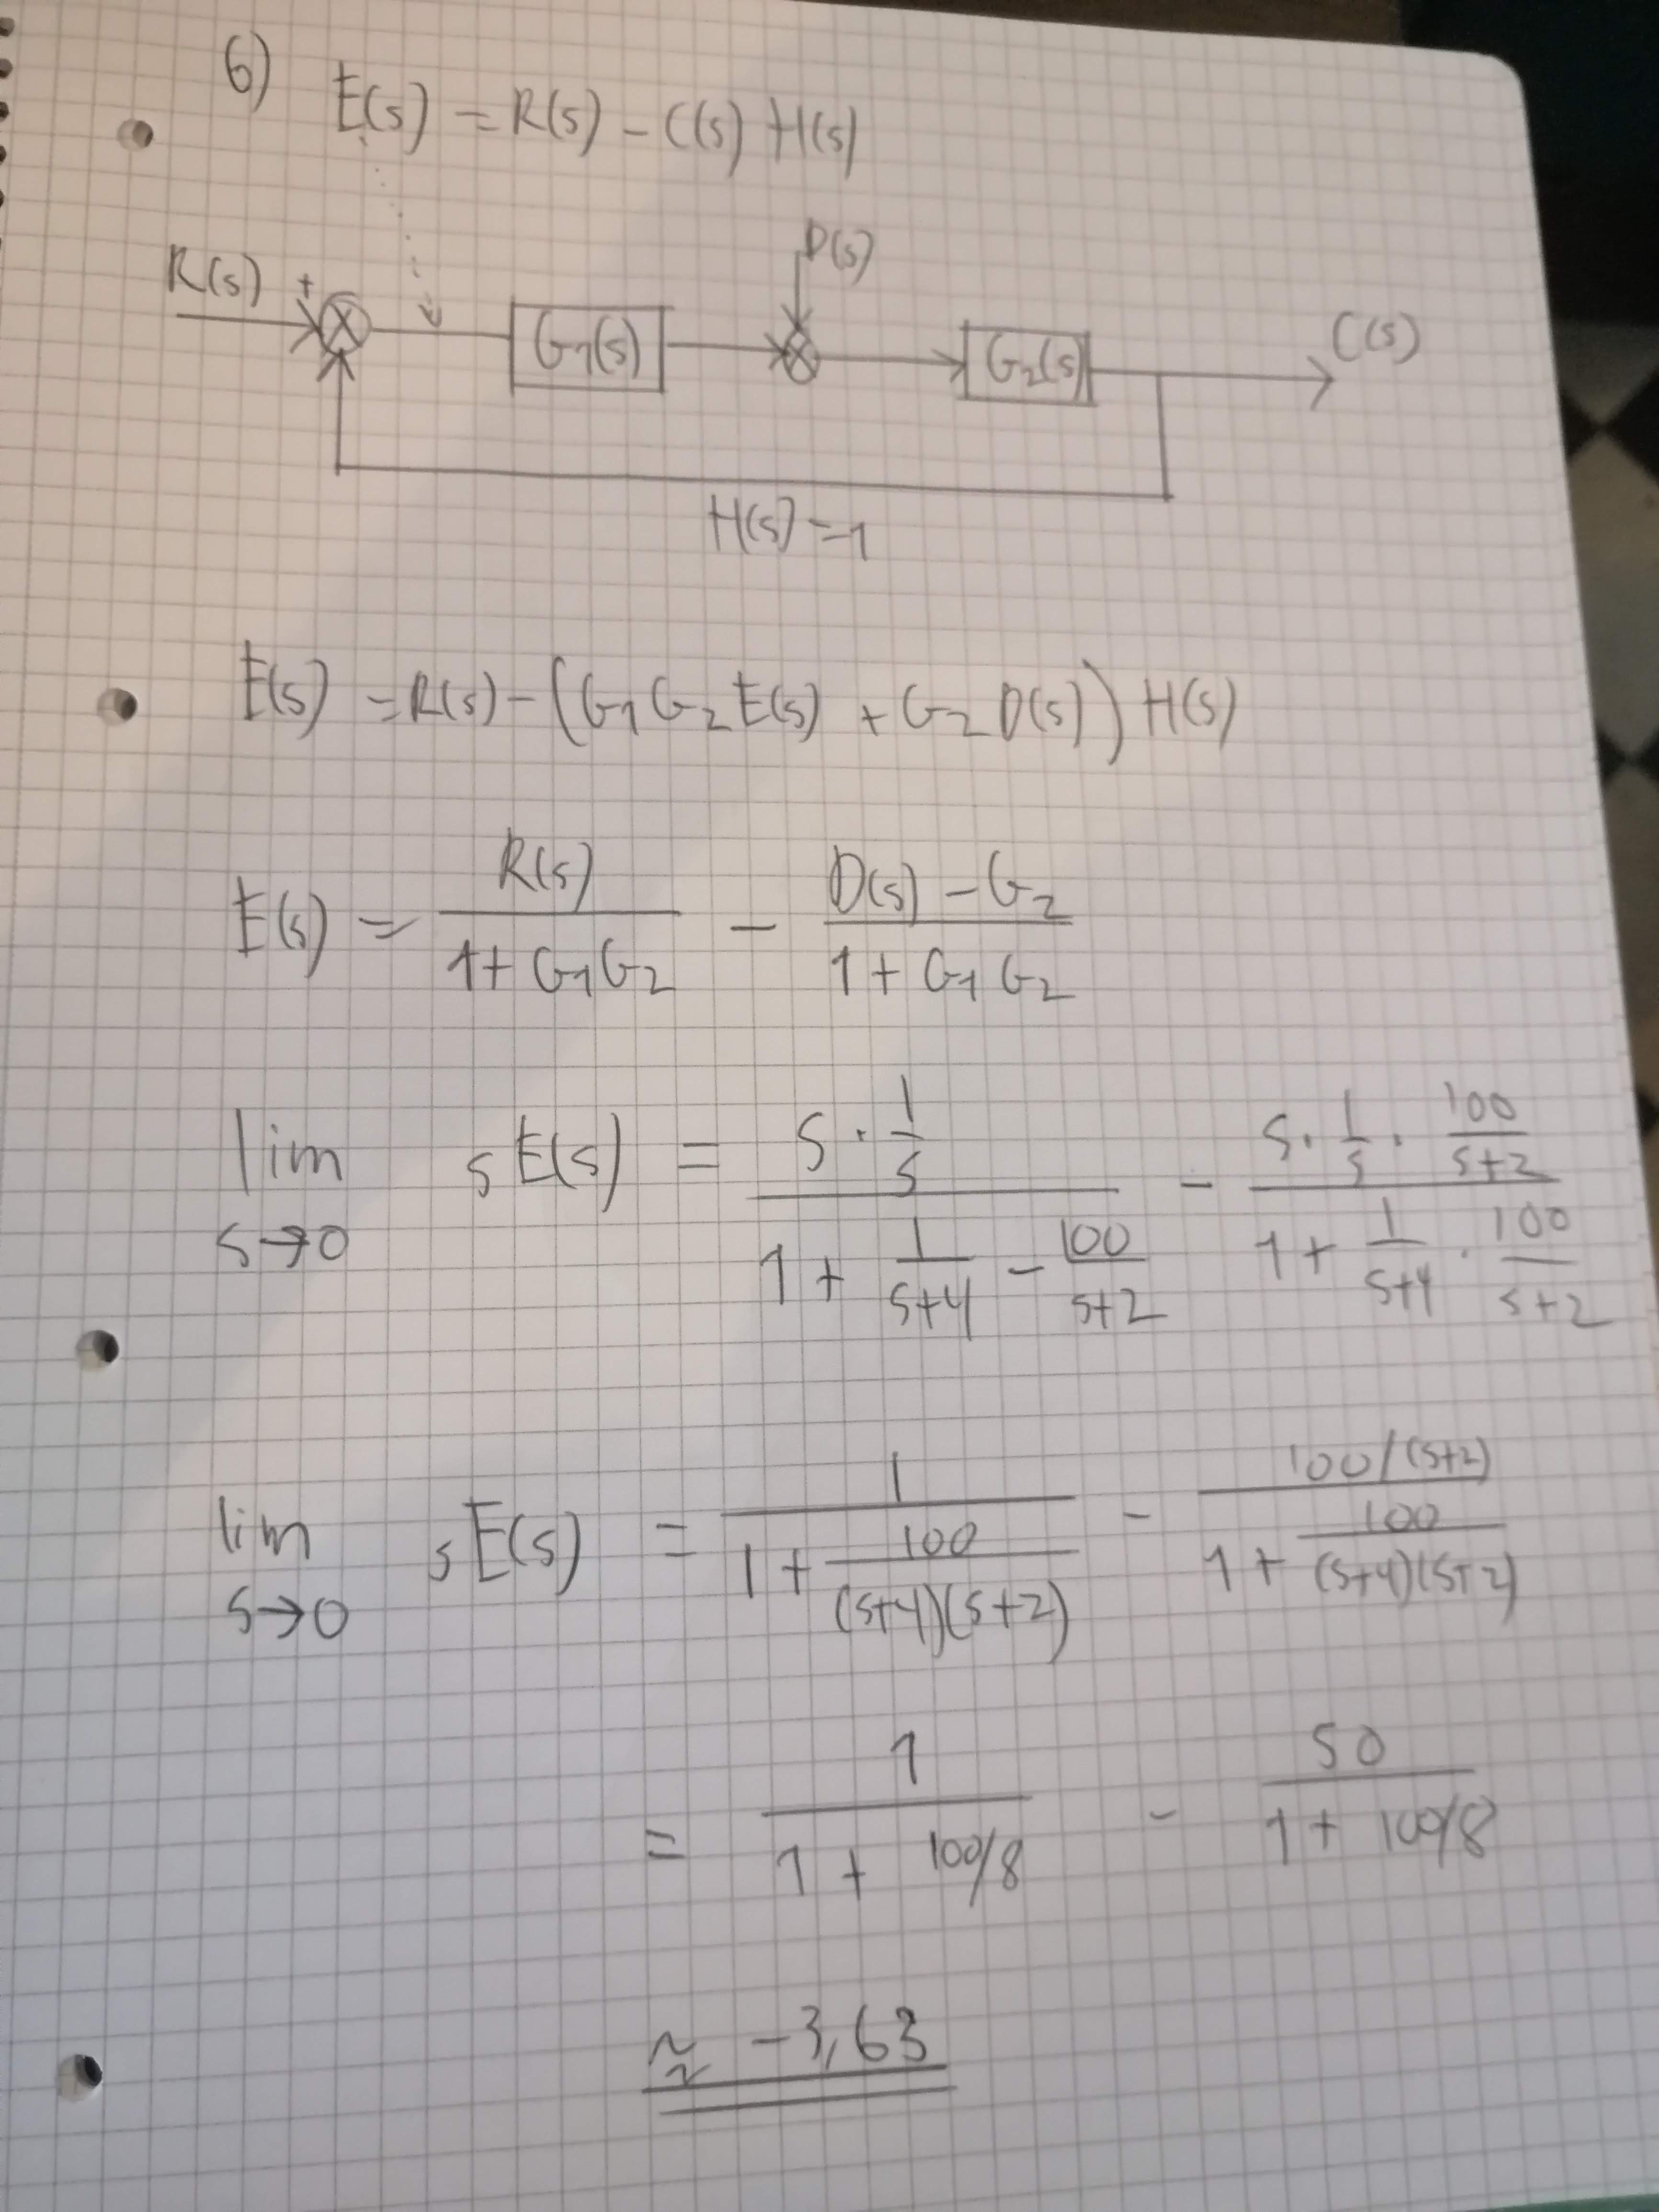 6)
E(s) = R(s) - C(s) H(s)
D(s)
R(s) +
G1(s)
G2(s)
C(s)
H(s) = 1
E(s) = R(s) - (G1 G2 E(s) + G2 D(s)) H(s)
E(s) = R(s) / (1 + G1 G2) - (D(s) - G2) / (1 + G1 G2)
lim s→0 s E(s) = (s · 1/s) / (1 + 1/(s+4) - 100/(s+2)) - (s · 1/s · 100/(s+2)) / (1 + 1/(s+4) · 100/(s+2))
lim s→0 s E(s) = 1 / (1 + 100/((s+4)(s+2))) - (100/(s+2)) / (1 + 100/((s+4)(s+2)))
= 1 / (1 + 100/8) - 50 / (1 + 100/8)
≈ -3,63